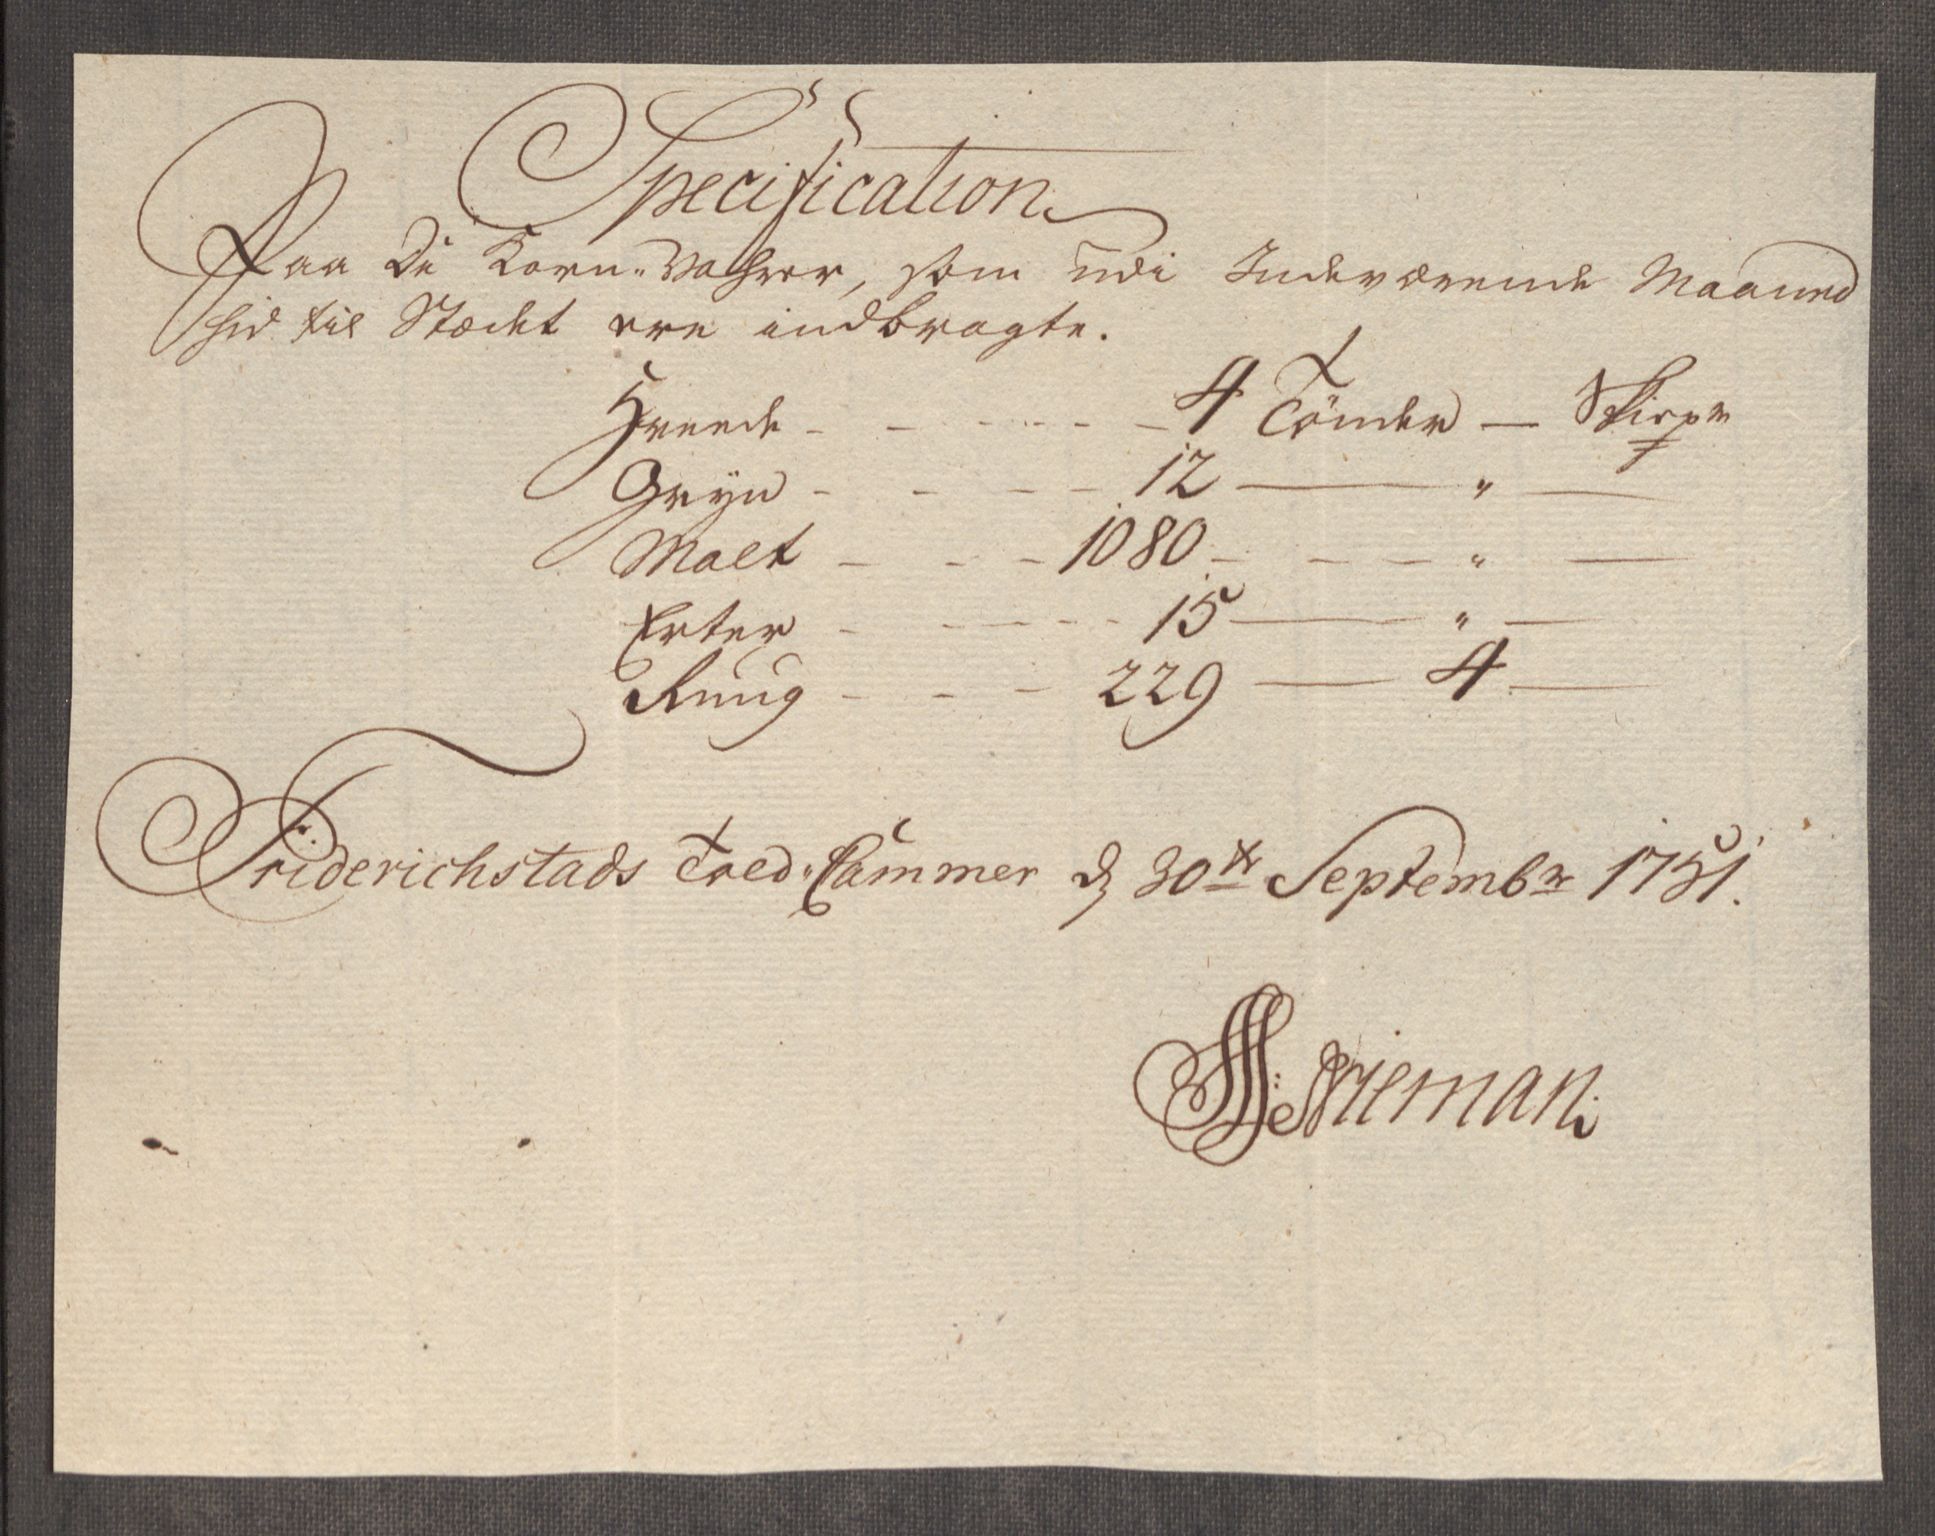 Specification
Paa De Korn-Vahrer, som udi Indeværende Maaned
hid til Stædet ere indbragte.
Hveede - - - - - 4 Tönder — Skiepr
Gryn - - - - 12 — " —
Malt - - - 1080 - - - " —
Erter - - - - - 15 — " —
Ruug - - - 229 — 4 —
Friderichstads Toed-Cammer d 30te Septembr 1751.
Nieman